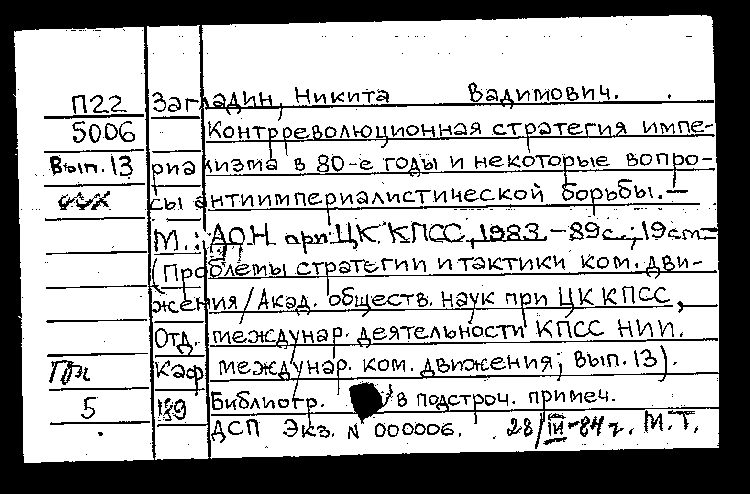 П22 Загладин, Никита Вадимович.
5006 Контрреволюционная стратегия импе-
Вып.13 риализма в 80-е годы и некоторые вопро-
сы антиимпериалистической борьбы. —
М.: АОН при ЦК КПСС, 1983. - 89с.; 19см-
(Проблемы стратегии и тактики ком. дви-
жения/Акад. обществ. наук при ЦК КПСС,
Отд. междунар. деятельности КПСС НИИ.
Каф. междунар. ком. движения; вып.13).
5 189 Библиогр. в подстроч. примеч.
ДСП Экз. N 000006. 28/III-84г. М.Т.